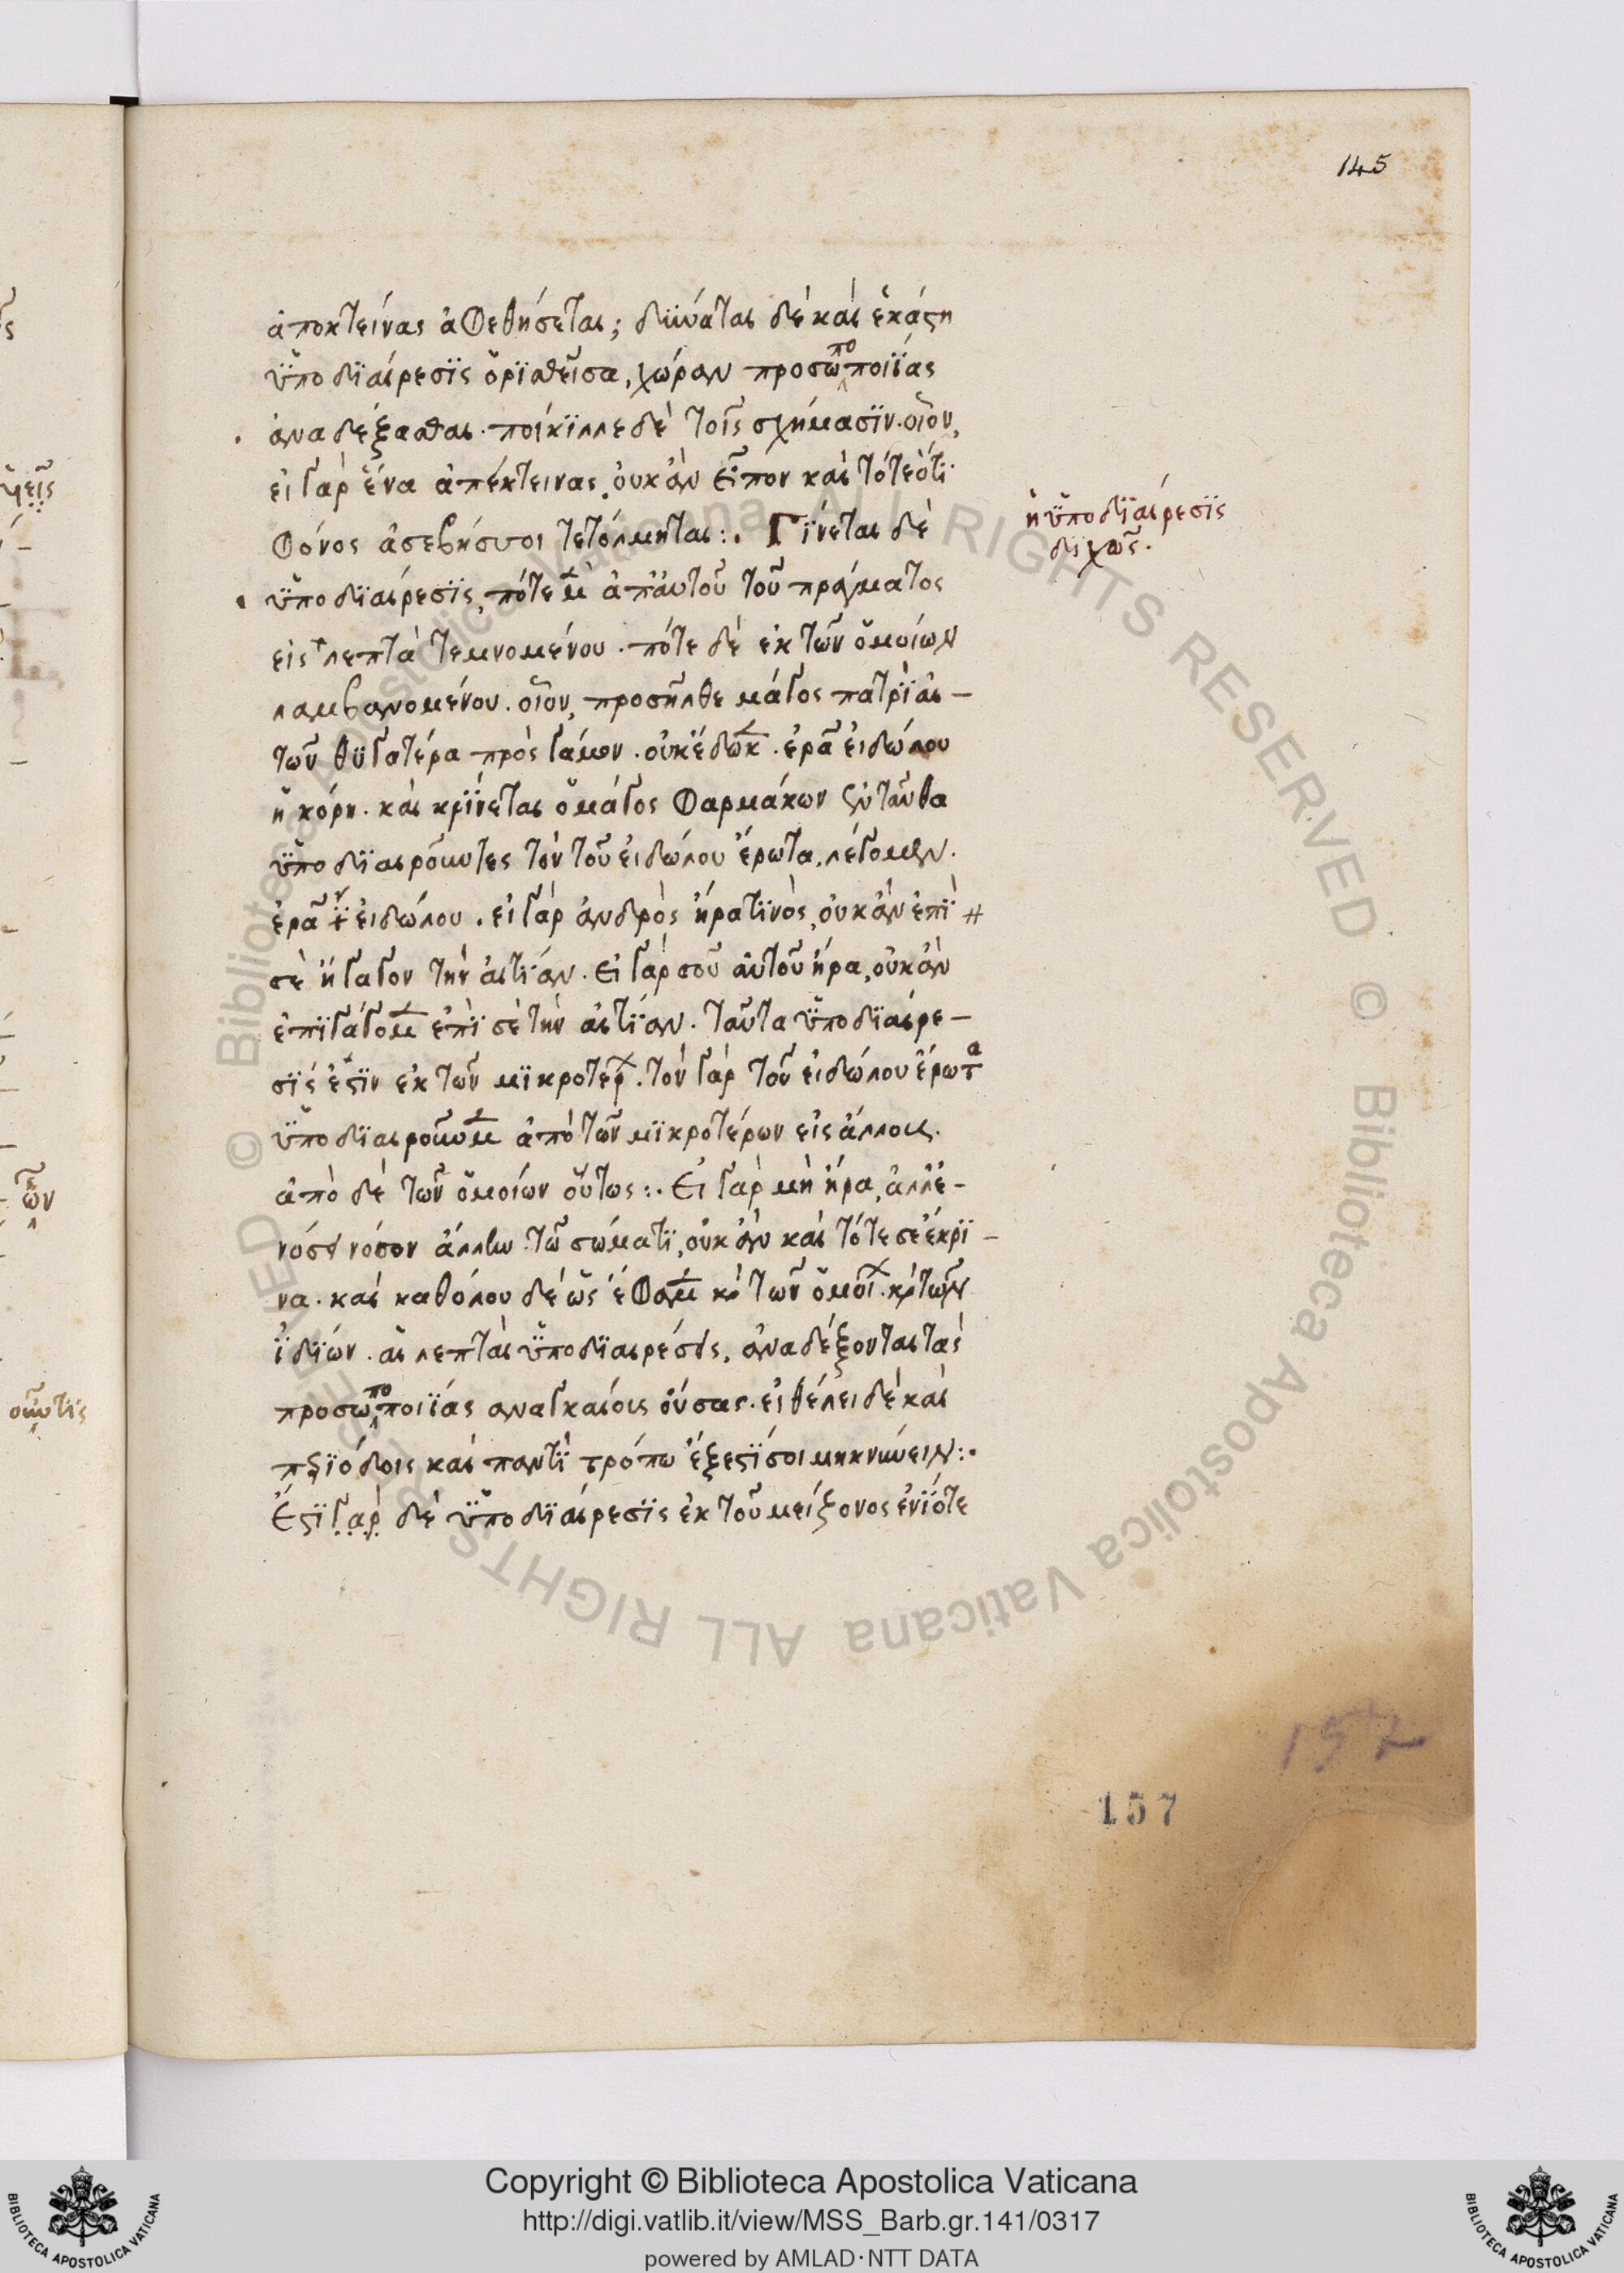 145
ἀποκτείνας ἀφεθήσεται; δύναται δὲ καὶ ἑκάστη
ὑποδιαίρεσις ὁριθεῖσα, χώραν προσωποποιΐας
ἀναδέξασθαι. ποίκιλλε δὲ τοῖς σχήμασιν. οἷον,
εἰ γὰρ ἕνα ἀπέκτεινας, οὐκ ἂν εἶπον καὶ τότε ὅτι
φόνος ἀσεβὴς σοι τετόλμηται:. Γίνεται δὲ
ἡ ὑποδιαίρεσις
διχῶς.
ὑποδιαίρεσις, πότε μὲν ἀπ' αὐτοῦ τοῦ πράγματος
εἰς λεπτὰ τεμνομένου. πότε δὲ ἐκ τῶν ὁμοίων
λαμβανομένου. οἷον, προσῆλθε μάγος πατρὶ αἰ-
τῶν θυγατέρα πρὸς γάμον. οὐκ ἔδωκεν. ἐρᾷ εἰδώλου
ἡ κόρη. καὶ κρίνεται ὁ μάγος φαρμάκων ἐνταῦθα
ὑποδιαιροῦντες τὸν τοῦ εἰδώλου ἔρωτα, λέγομεν.
ἐρᾷ εἰδώλου. εἰ γὰρ ἀνδρὸς ἤρα τινὸς, οὐκ ἂν ἐπὶ
σὲ ἤγαγον τὴν αἰτίαν. εἰ γὰρ σοῦ αὐτοῦ ἤρα, οὐκ ἂν
ἐπὶ σὲ τὴν αἰτίαν. ταῦτα ὑποδιαίρε-
σίς ἐστιν ἐκ τῶν μικροτέρων. τὸν γὰρ τοῦ εἰδώλου ἔρωτα
ὑποδιαιροῦμεν ἀπὸ τῶν μικροτέρων εἰς ἄλλους.
ἀπὸ δὲ τῶν ὁμοίων οὕτως:. Εἰ γὰρ μὴ ἤρα, ἀλλ' ἐ-
νόσει νόσον ἄλλην τῷ σώματι, οὐκ ἂν καὶ τότε σε ἔκρι-
να. καὶ καθόλου δὲ ὡς ἔφαμεν κἀκ τῶν ὁμοίων κἀκ τῶν
ἰδίων. αἱ λεπταὶ ὑποδιαιρέσεις, ἀναδέξονται τὰς
προσωποποιΐας ἀναγκαίους οὔσας. εἰ θέλει δὲ καὶ
περιόδοις καὶ παντὶ τρόπῳ ἔξεστί σοι μηκύνειν:.
Ἔστι γὰρ δὲ ὑποδιαίρεσις ἐκ τοῦ μείζονος ἐνίοτε
157
157
Copyright © Biblioteca Apostolica Vaticana
http://digi.vatlib.it/view/MSS_Barb.gr.141/0317
powered by AMLAD·NTT DATA